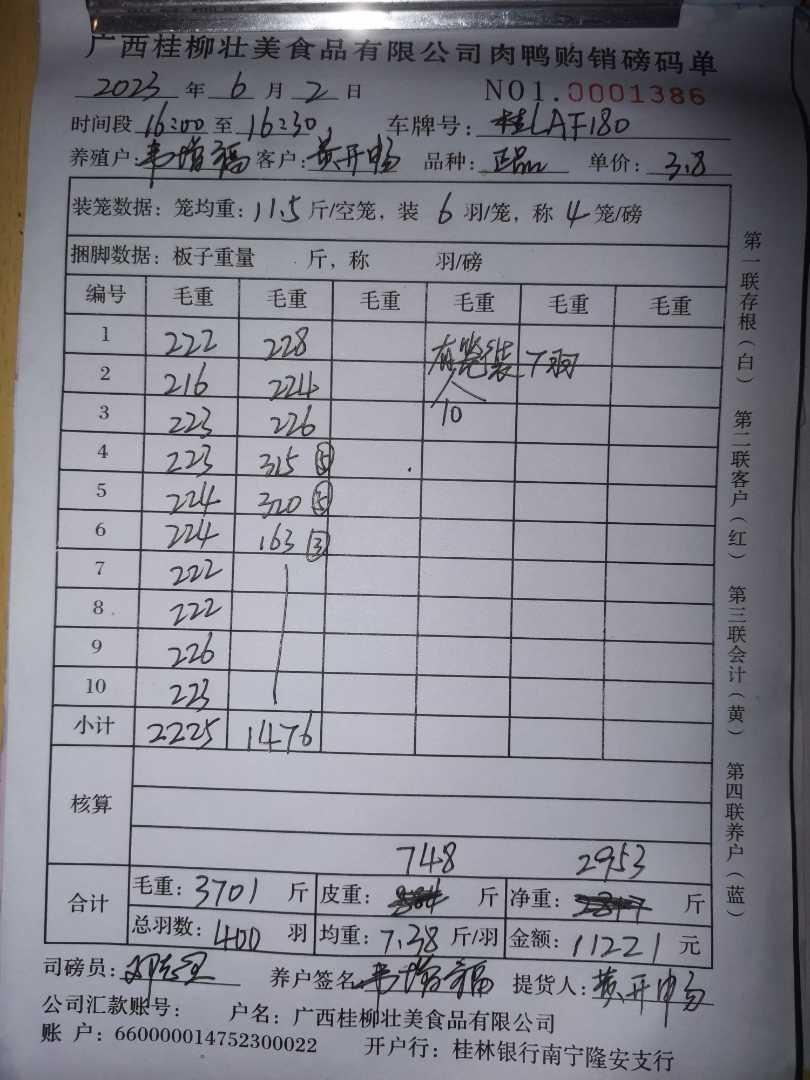 广西桂柳壮美食品有限公司肉鸭购销磅码单
2023 年 6 月 2 日 NO1.0001386
时间段 16:00 至 16:30, 车牌号: 桂LAF180
养殖户: 韦增福 客户: 黄开畅 品种: 正品 单价: 3.8
装笼数据: 笼均重: 11.5 斤/空笼, 装 6 羽/笼, 称 4 笼/磅
捆脚数据: 板子重量 斤, 称 羽/磅
编号 毛重 毛重 毛重 毛重 毛重 毛重
1 222 228 有笼装7羽
2 216 224 个
3 223 226 10
4 223 315 ⑤
5 224 320 ⑤
6 224 163 ③
7 222
8 222
9 226
10 223
小计 2225 1476
核算
748 2953
合计
毛重: 3701 斤 皮重: 斤 净重: 斤
总羽数: 400 羽 均重: 7.38 斤/羽 金额: 11221 元
司磅员: 养户签名 韦增福 提货人: 黄开畅
公司汇款账号: 户名: 广西桂柳壮美食品有限公司
账 户: 660000014752300022 开户行: 桂林银行南宁隆安支行
第一联存根(白) 第二联客户(红) 第三联会计(黄) 第四联养户(蓝)